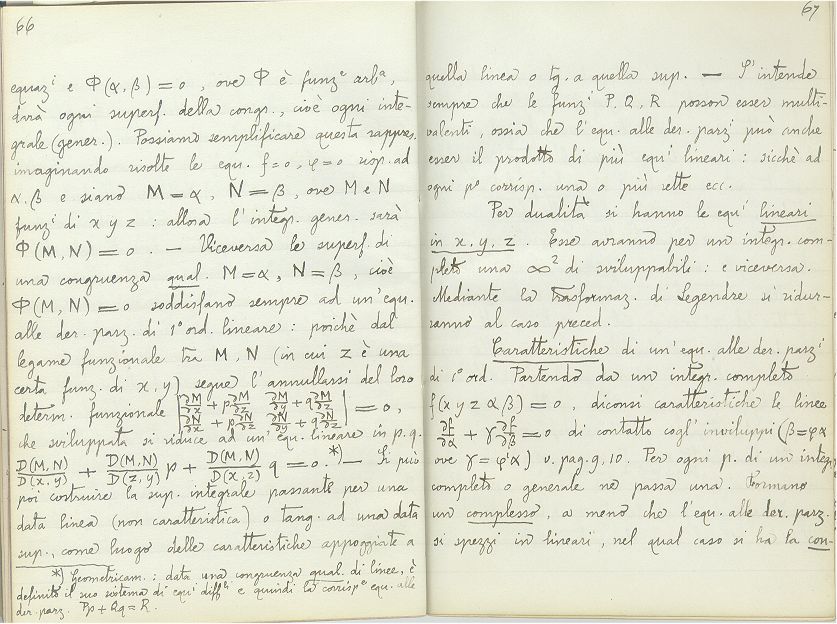 66
equaz^i e Φ(α,β) = 0, ove Φ è funz^e arb^a,
darà ogni superf. della congr., cioè ogni inte-
grale (gener.). Possiamo semplificare questa rappres.
imaginando risolte le equ. f=0, φ=0 risp. ad
α, β e siano M = α, N = β, ove M e N
funz^i di x y z : allora l'integr. gener. sarà
Φ(M, N) = 0. — Viceversa le superf. di
una congruenza qual. M = α, N = β, cioè
Φ(M, N) = 0 soddisfano sempre ad un'equ.
alle der. parz. di 1° ord. lineare : poichè dal
legame funzionale tra M, N (in cui z è una
certa funz. di x, y) segue l'annullarsi del loro
determ. funzionale | ∂M/∂x + p ∂M/∂z   ∂M/∂y + q ∂M/∂z ; ∂N/∂x + p ∂N/∂z   ∂N/∂y + q ∂N/∂z | = 0,
che sviluppata si riduce ad un'equ. lineare in p. q.
D(M,N)/D(x,y) + D(M,N)/D(z,y) p + D(M,N)/D(x,z) q = 0. *) — Si può
poi costruire la sup. integrale passante per una
data linea (non caratteristica) o tang. ad una data
sup., come luogo delle caratteristiche appoggiate a
*) Geometricam. : data una congruenza qual. di linee, è
definito il suo sistema di equ^i diff^li e quindi la corrisp^e equ. alle
der. parz. Pp + Qq = R.
67
quella linea o tg. a quella sup. — S'intende
sempre che le funz^i P, Q, R posson esser multi-
valenti, ossia che l'equ. alle der. parz^i può anche
esser il prodotto di più equ^i lineari : sicchè ad
ogni p^o corrisp. una o più rette ecc.
Per dualità si hanno le equ^i lineari
in x, y, z. Esse avranno per un integr. com-
pleto una ∞² di sviluppabili : e viceversa.
Mediante la trasformaz. di Legendre si ridur-
ranno al caso preced.
Caratteristiche di un'equ. alle der. parz^i
di 1° ord. Partendo da un integr. completo
f(x y z α β) = 0, diconsi caratteristiche le linee
∂f/∂α + γ ∂f/∂β = 0 di contatto cogl'inviluppi (β = φα
ove γ = φ'α) v. pag. 9, 10. Per ogni p. di un integr.
completo o generale ne passa una. Formano
un complesso, a meno che l'equ. alle der. parz.
si spezzi in lineari, nel qual caso si ha la con-